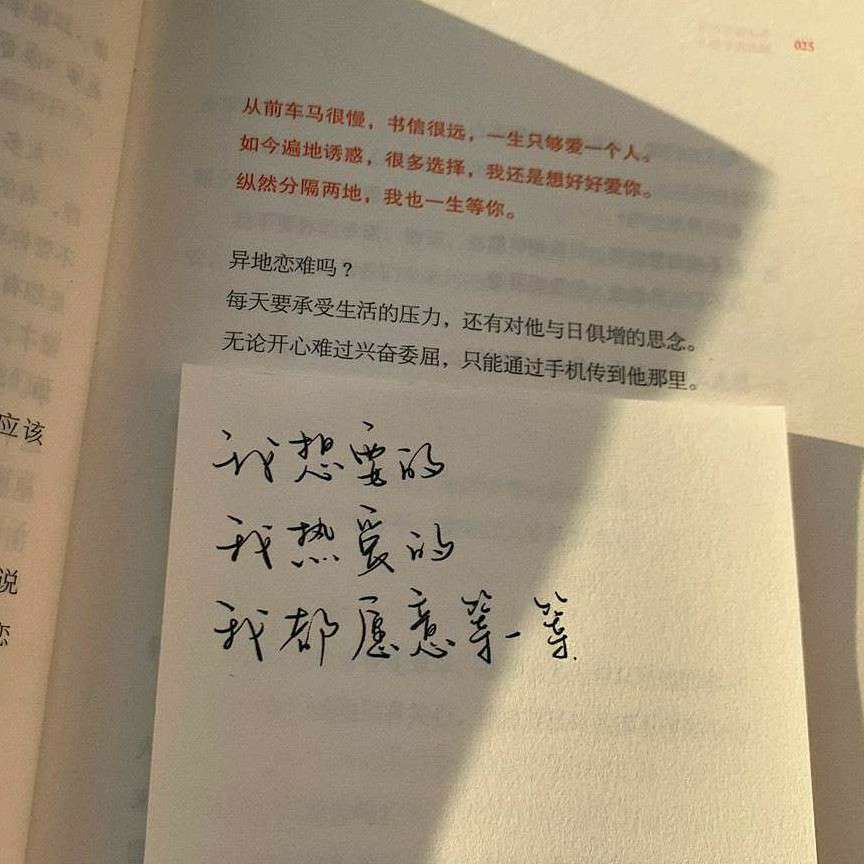 025
从前车马很慢，书信很远，一生只够爱一个人。
如今遍地诱惑，很多选择，我还是想好好爱你。
纵然分隔两地，我也一生等你。
异地恋难吗？
每天要承受生活的压力，还有对他与日俱增的思念。
无论开心难过兴奋委屈，只能通过手机传到他那里。
应该
说
恋
我想要的
我热爱的
我都愿意等一等.